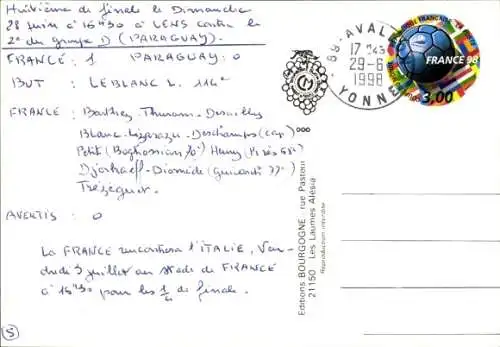 Huitième de finale le Dimanche
28 juin à 16h30 à LENS contre le
2e du groupe D (PARAGUAY).
FRANCE : 1 PARAGUAY : 0
BUT : LEBLANC L. 114e
FRANCE : Barthez - Thuram - Desailly
Blanc - Lizarazu - Deschamps (cap)
Petit (Boghossian 70e) Henry (Pirès 65e)
Djorkaeff - Diomède (Guivarch 77e)
Trézéguet.
AVERTIS : 0
La FRANCE rencontrera l'ITALIE, Ven-
dredi 3 juillet au stade de FRANCE
à 16h30 pour les 1/4 de finale.
5
Editions BOURGOGNE rue Pasteur
21150 Les Laumes Alésia
Reproduction interdite
89-AVALLON
17 H45
29-6
1998
YONNE
FRANCE 98
3,00